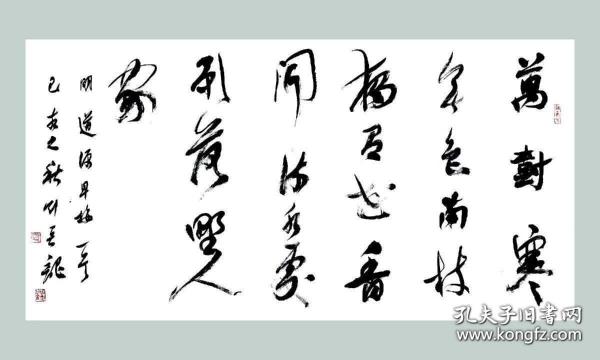 萬樹寒
無色南枝
獨有花香
聞流水處
影落野人
家
明道源早梅一首
己亥之秋
孔夫子旧书网
www.kongfz.com